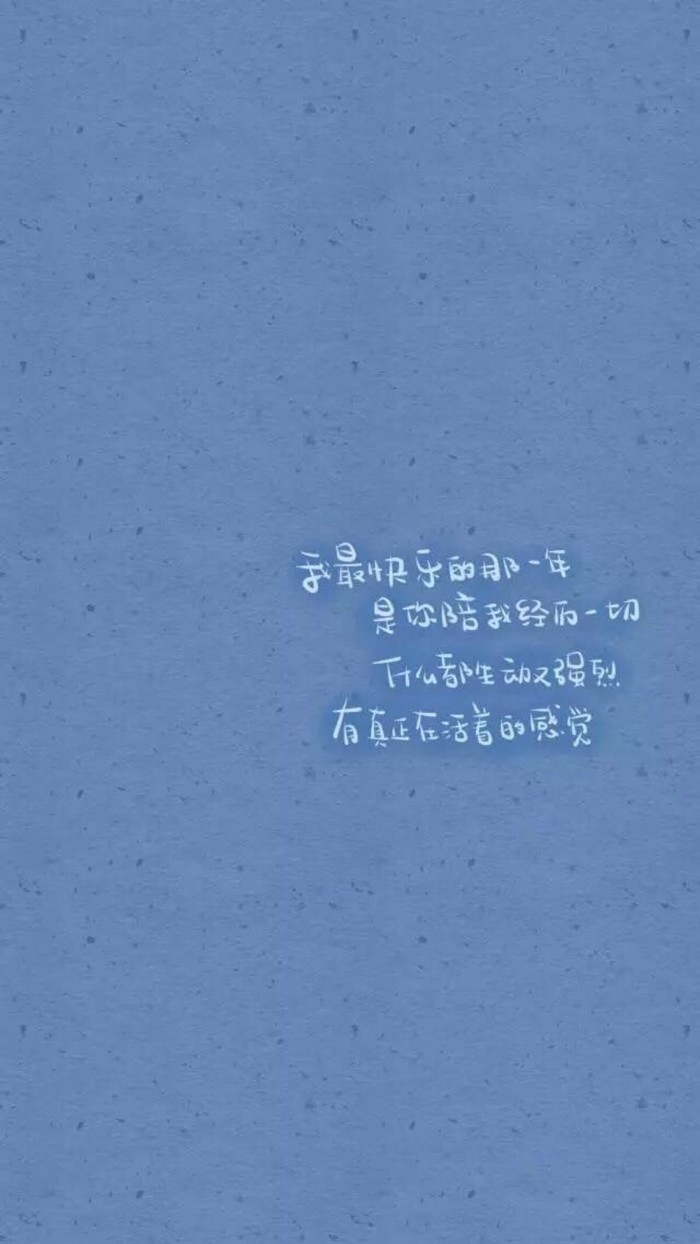 我最快乐的那一年
是你陪我经历一切
什么都生动又强烈
有真正在活着的感觉